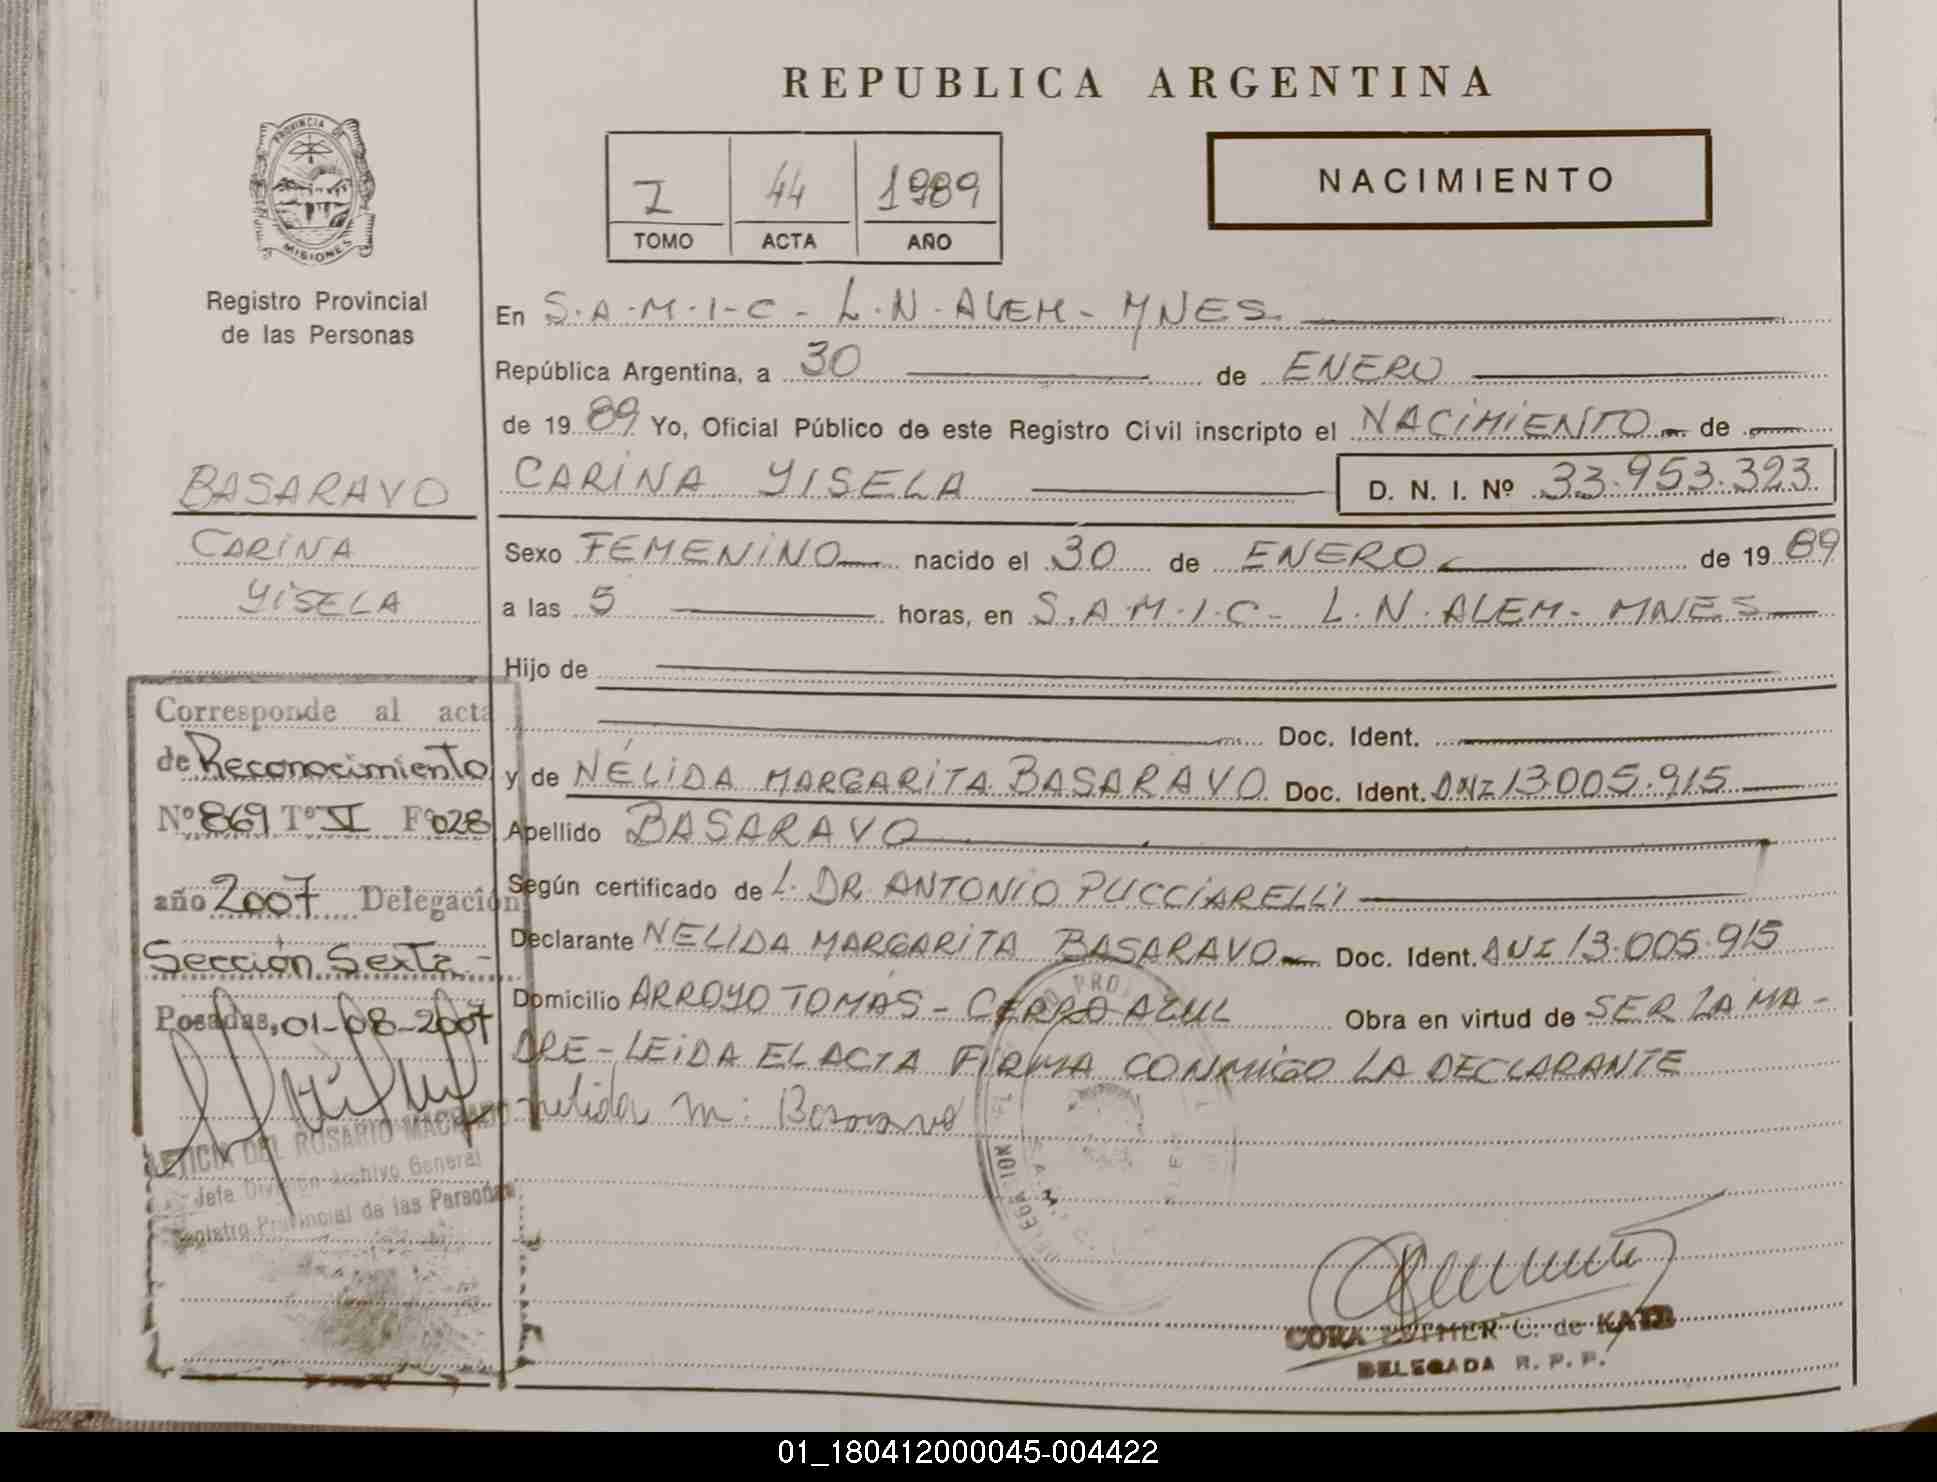 REPUBLICA ARGENTINA
PROVINCIA DE
MISIONES
Registro Provincial
de las Personas
I 44 1989
TOMO ACTA AÑO
NACIMIENTO
En S.A.M.I.C - L.N. ALEM - MNES.
República Argentina, a 30 de ENERO
de 1989 Yo, Oficial Público de este Registro Civil inscripto el NACIMIENTO de
BASARAVO
CARINA
YISELA
CARINA YISELA D. N. I. Nº 33.953.323
Sexo FEMENINO nacido el 30 de ENERO de 1989
a las 5 horas, en S.A.M.I.C - L.N. ALEM - MNES
Hijo de
Doc. Ident.
y de NÉLIDA MARGARITA BASARAVO Doc. Ident. DNI 13.005.915
Apellido BASARAVO
Según certificado de L. DR. ANTONIO PUCCIARELLI
Declarante NELIDA MARGARITA BASARAVO Doc. Ident. DNI 13.005.915
Domicilio ARROYO TOMÁS - CERRO AZUL Obra en virtud de SER LA MA-
DRE - LEIDA EL ACTA FIRMA CONMIGO LA DECLARANTE
Nelida M. Basaravo
Corresponde al acta
de Reconocimiento
Nº 869 Tº VI Fº 028
año 2007 Delegación
Sección Sexta -
Posadas, 01-08-2007
LETICIA DEL ROSARIO MACHADO
Jefe División Archivo General
Registro Provincial de las Personas
CORA ESTHER C. de KATZ
DELEGADA R. P. P.
01_180412000045-004422